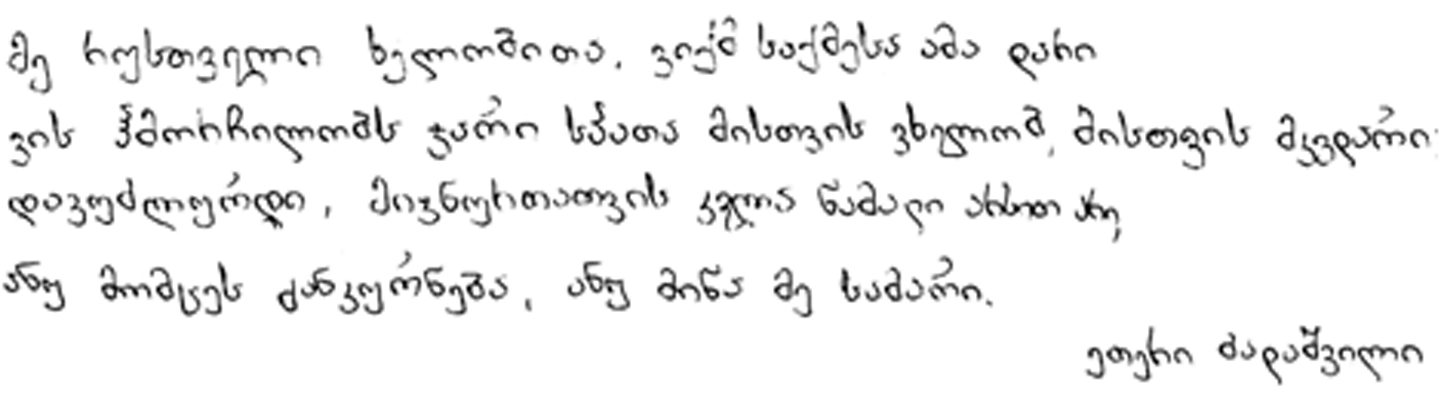 მე რუსთველი ხელობითა, ვიქმ საქმესა ამა დარი
ვის ჰმორჩილობს ჯარი სპათა მისთვის ვხელობ, მისთვის მკვდარი
დავუძლურდი, მიჯნურთათვის კვლა წამალი არსით არი,
ანუ მომცეს განკურნება, ანუ მიწა მე სამარი.
ეთერი ბადაშვილი